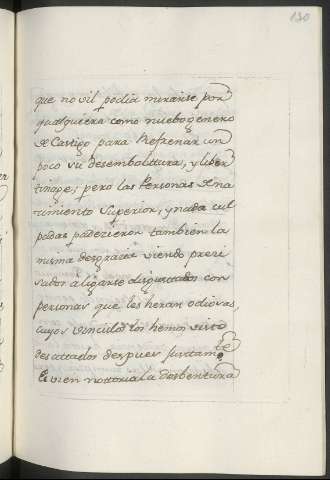 130
que no vil podia mirarse por
qualquiera como nuebo genero
de Castigo para Refrenar un
poco su desemboltura, y liber
tinage; pero las Personas de na
cimiento Superior, y nada cul
padas padezieron tambien la
misma desgracia viendo preci
sados a ligarse disgustados con
personas que les heran odiosas,
cuyos vinculos los hemos visto
desattados despues juntamte
Es vien nottoria la desbentura